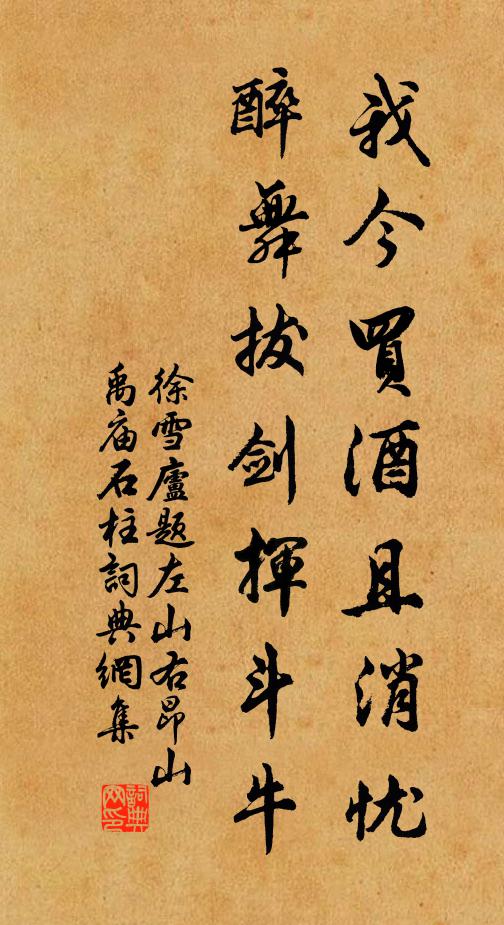 我今買酒且消忧
醉舞拔剑揮斗牛
徐雪廬题左山右昂山
禹庙石柱詞典網集
詞典網印